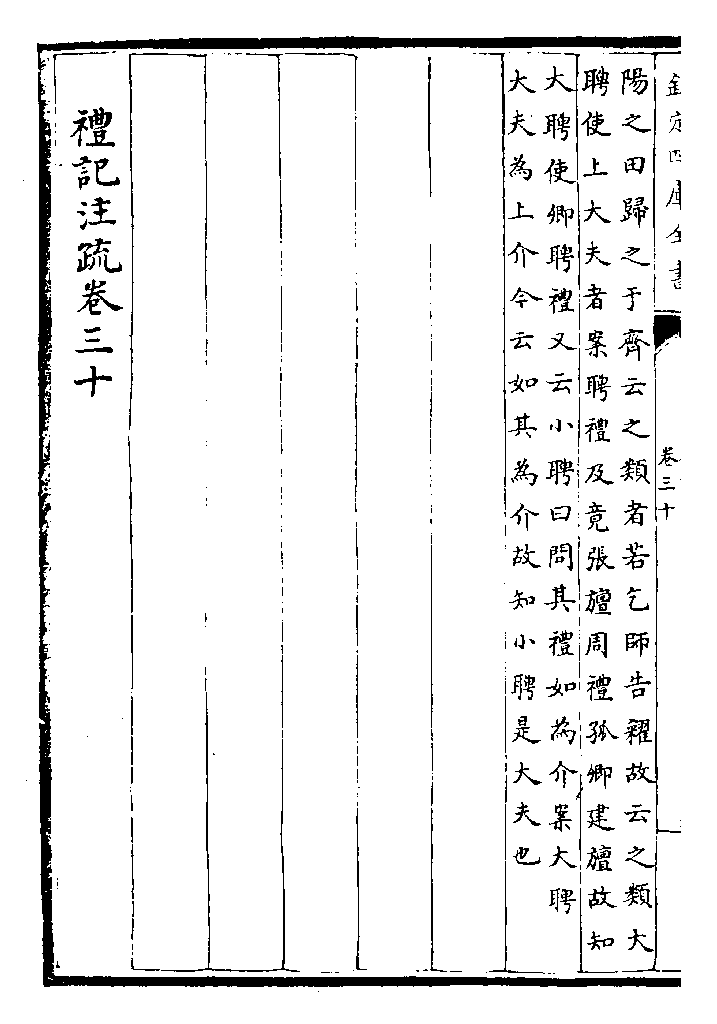 欽定四庫全書
卷三十
陽之田歸之于齊云之類者若乞師告糴故云之類大
聘使上大夫者案聘禮及竟張旜周禮孤卿建旜故知
大聘使卿聘禮又云小聘曰問其禮如為介案大聘
大夫為上介今云如其為介故知小聘是大夫也
禮記注疏卷三十